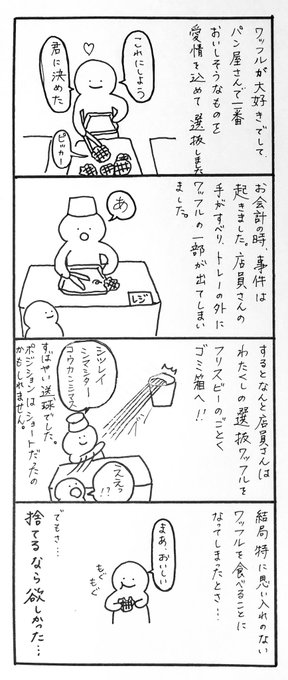 ワッフルが大好きでして
パン屋さんで一番
おいしそうなものを
愛情を込めて選抜しました
これにしよう
君に決めた
ピッカー
お会計の時、事件は
起きました。店員さんの
手がすべり、トレーの外に
ワッフルの一部が出てしまい
ました。
あ
レジ
するとなんと店員さんは
わたくしの選抜ワッフルを
フリスビーのごとく
ゴミ箱へ!!
シツレイ
シマシター
コウカンシマス
えぇっ
!?
すばやい送球でした。
ポジションはショートだったの
かもしれません。
結局特に思い入れのない
ワッフルを食べることに
なってしまったとさ…
まあ、おいしい
もぐ
もぐ
でもさ…
捨てるなら欲しかった…